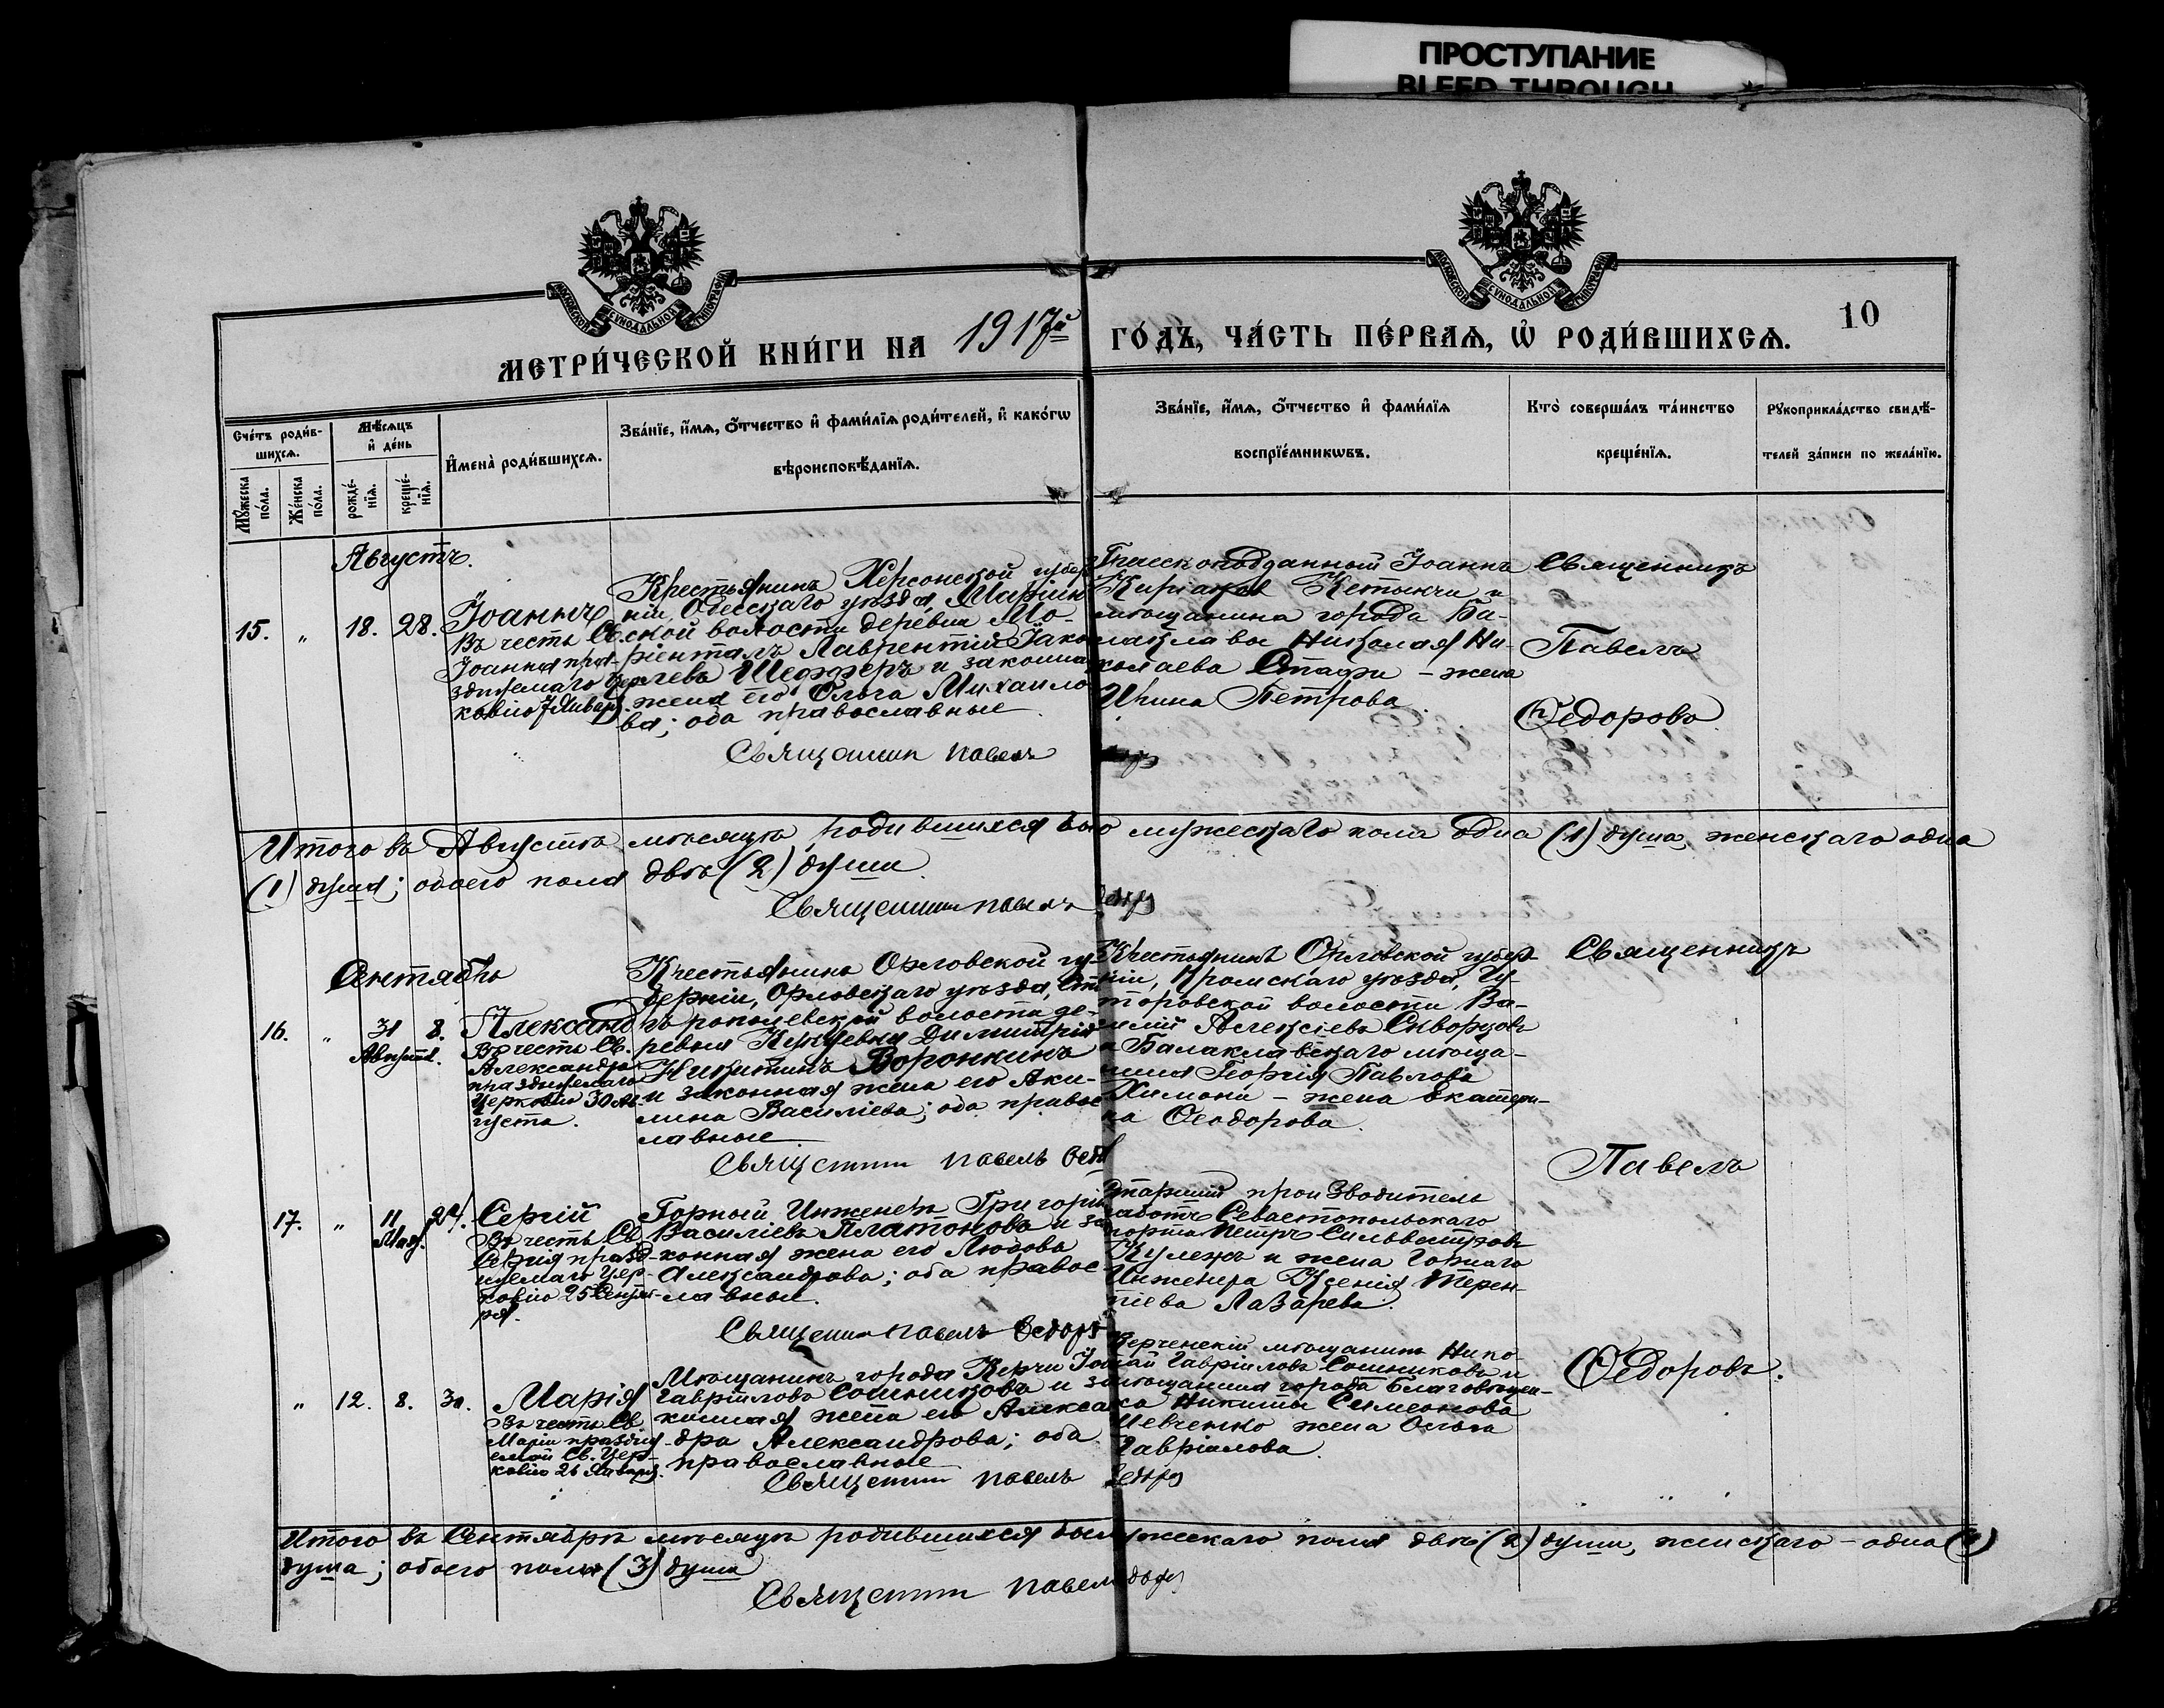 ПРОСТУПАНИЕ
BLEED THROUGH
МОСКОВСКОЙ СѴНОДАЛЬНОЙ ТИПОГРАФІИ
МОСКОВСКОЙ СѴНОДАЛЬНОЙ ТИПОГРАФІИ
МЕТРИ́ЧЕСКОЙ КНИ́ГИ НА 1917й ГО́ДЪ, ЧА́СТЬ ПЕ́РВАѦ, Ѡ҆ РОДИ́ВШИХСѦ.
10
Сче́тъ роди́в-
шихсѧ.
Мꙋ́жеска
по́ла.
Же́нска
по́ла.
Мѣ́сѧцъ
и҆ де́нь
рожде́-
нїѧ.
креще́-
нїѧ.
И҆мена̀ роди́вшихсѧ.
Зва́нїе, и҆́мѧ, ѻ҆́тчество и҆ фами́лїѧ роди́телей, и҆ како́гѡ
вѣроисповѣ́данїѧ.
Зва́нїе, и҆́мѧ, ѻ҆́тчество и҆ фами́лїѧ
воспрїе́мникѡвъ.
Кто̀ соверша́лъ та́инство
креще́нїѧ.
Рꙋкоприкла́дство свидѣ́-
телей за́писи по жела́нїю.
Августъ.
15. " 18. 28.
Іоаннъ
Въ честь Св.
Іоанна пра-
зднуемаго Цер-
ковію 7 Января.
Крестьянинъ Херсонской губер-
ніи, Одесскаго уѣзда, Маріин-
ской волости деревни Мо-
ріенталь Лаврентій Іако-
влевъ Шефферъ и законная
жена его Ольга Михаило-
ва; оба православные.
Священник Павелъ
Грескоподданный Іоаннъ
Киріаков Кетыкчи и
мѣщанина города Ба-
лаклавы Николая Ни-
колаева Стафи - жена
Ирина Петрова.
Священникъ
Павелъ
Ѳедоровъ.
Итого въ Августѣ мѣсяцѣ родившихся было мужескаго пола одна (1) душа, женскаго одна
(1) душа; обоего пола двѣ (2) души.
Священник Павелъ
Сентябрь
16. " 31 Августа. 8.
Александръ
Въ честь Св.
Александра
празднуемаго
Церковію 30 Ав-
густа.
Крестьянинъ Орловской гу-
берніи, Орловскаго уѣзда,
волости де-
ревни Димитрій
Никитинъ Воронкинъ
и законная жена его Аки-
лина Василіева; оба правос-
лавные.
Священник Павелъ Ѳедо
Крестьянинъ Орловской губер-
ніи, Кромскаго уѣзда, Гу-
торовской волости Ва-
силій Алексіевъ Скворцовъ
и Балаклавскаго мѣща-
нина Георгія Павлова
Химони - жена Екатери-
на Ѳеодорова.
Священникъ
Павелъ
Ѳедоровъ.
17. " 11 Мая. 24.
Сергій
Въ честь Св.
Сергія празд-
нуемаго Цер-
ковію 25 Сентяб-
ря.
Горный Инженеръ Григорій
Василіевъ Платоновъ и за-
конная жена его Любовь
Александрова; оба правос-
лавные.
Священник Павелъ Ѳедоро
Старшій производитель
работъ Севастопольскаго
порта Петръ Сильвестровъ
и жена Горнаго
Инженера Ксенія Терен-
тіева Лазарева.
" 12. 8. 30.
Марія
Въ честь Св.
Маріи праздну-
емой Св. Цер-
ковію 26 Января.
Мѣщанинъ города Керчи
Гавріиловъ Сошниковъ и за-
конная жена его Алексан-
дра Александрова; оба
православные
Священник Павелъ
Керченскій мѣщанинъ Нико-
лай Гавріиловъ Сошниковъ и
мѣщанина города Благовѣщен-
ска Никиты Симеонова
Шевченко жена Ольга
Гавріилова.
Итого въ Сентябрѣ мѣсяцѣ родившихся было мужескаго пола двѣ (2) души, женскаго - одна (1)
душа; обоего пола (3) души
Священник Павелъ